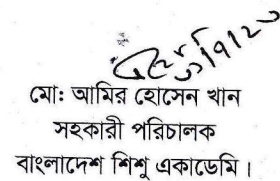 মো: আমির হোসেন খান
সহকারী পরিচালক
বাংলাদেশ শিশু একাডেমি।